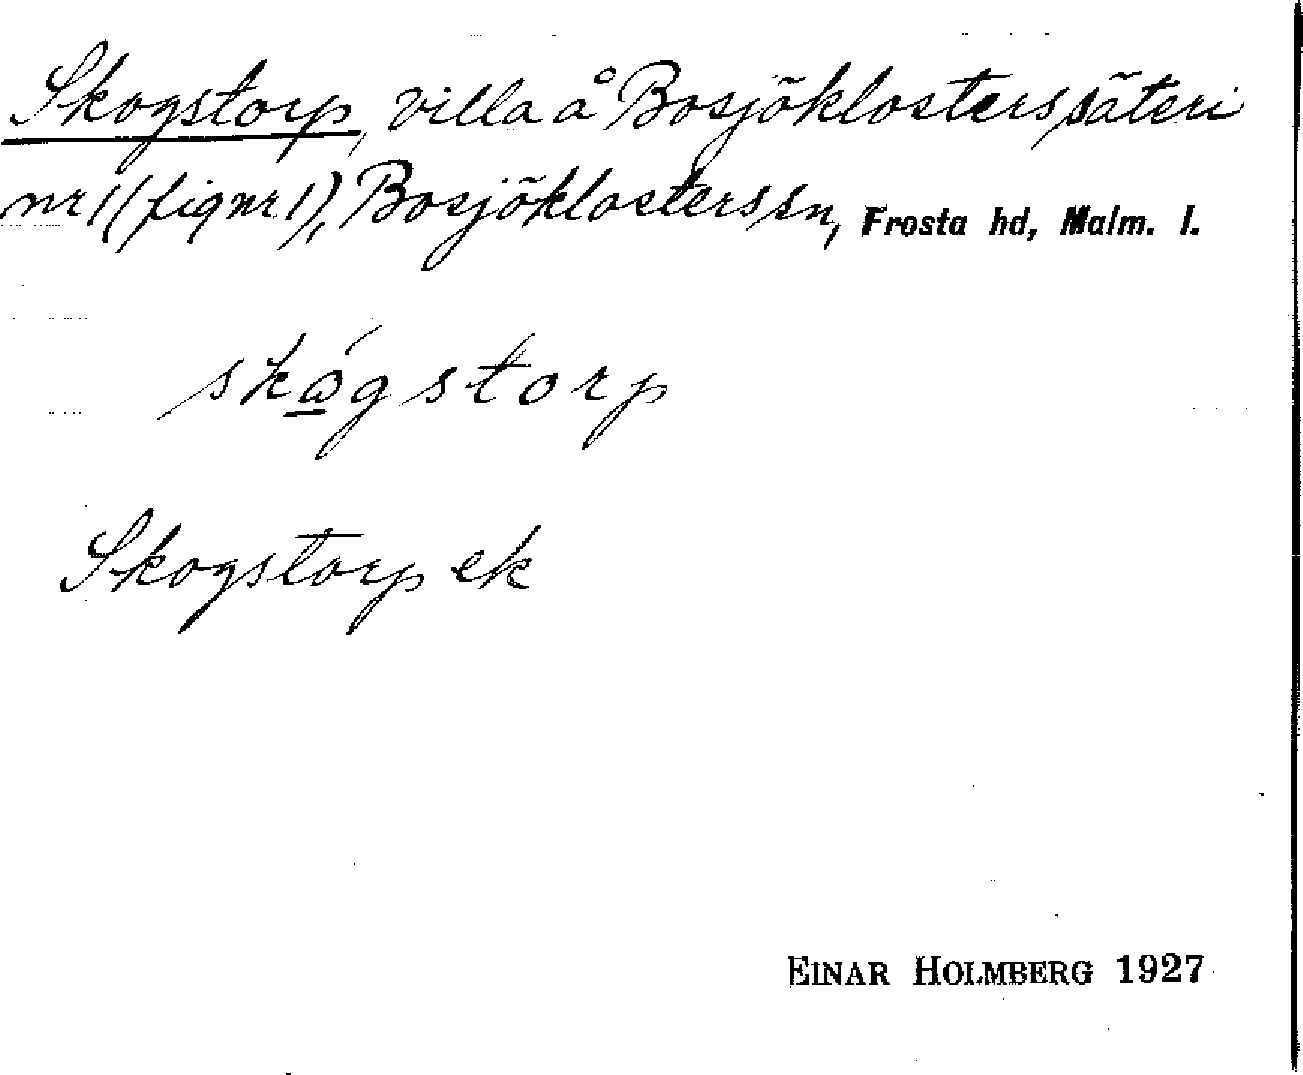 Skogstorp, villa å Bosjöklosters säteri
nr 1 (fig nr 1), Bosjöklosters sn, Frosta hd, Malm. l.
skógstorp
Skogstorp ek
EINAR HOLMBERG 1927